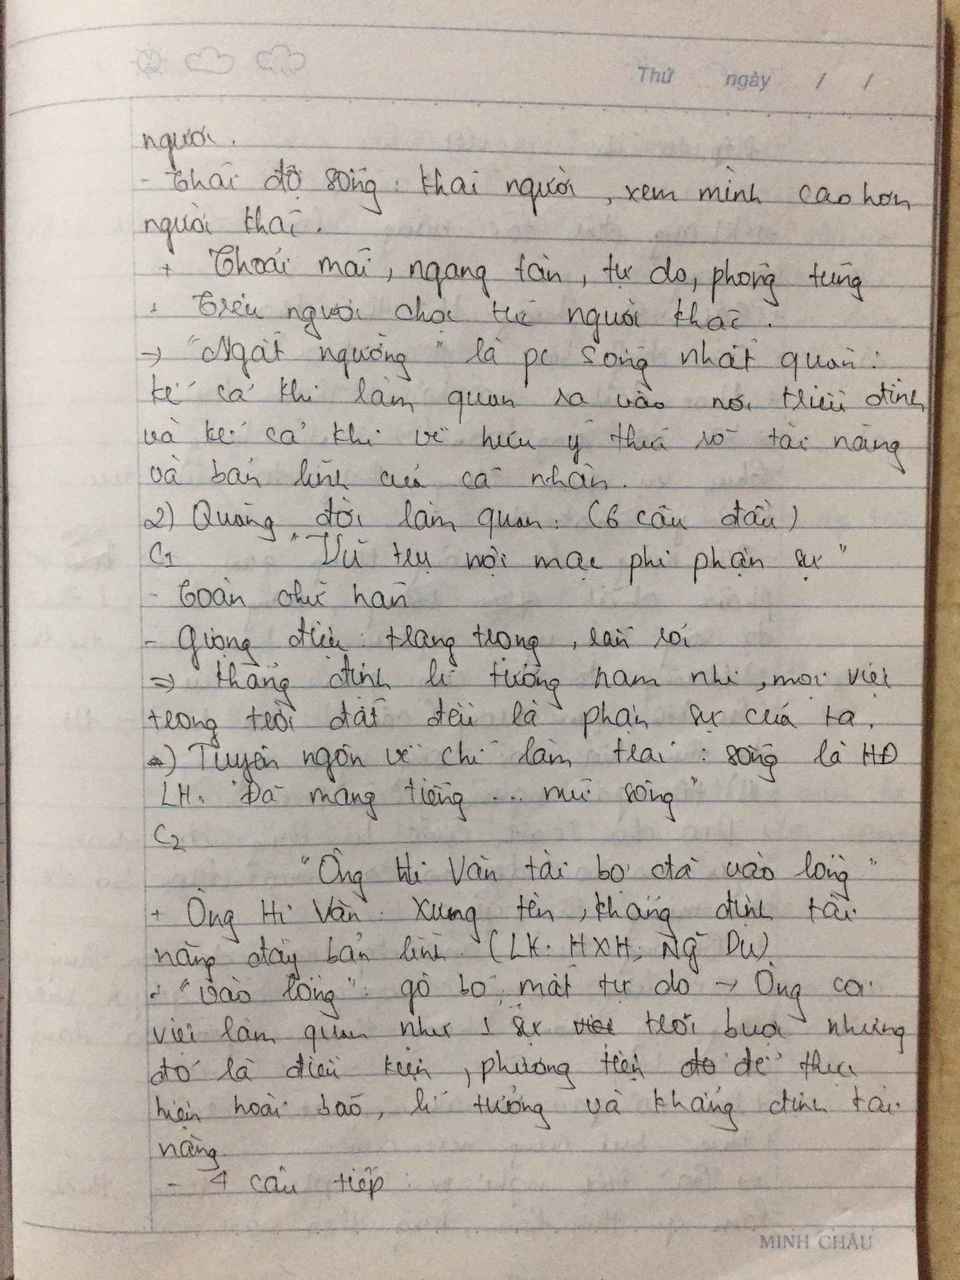 Thứ ngày / /
người.
- Thái độ sống: khác người, xem mình cao hơn
người khác.
+ Thoái mái, ngang tàn, tự do, phóng túng
+ Trêu ngươi chọc tức người khác.
→ "Ngất ngưởng" là pc sống nhất quán:
kể cả khi làm quan ra vào nơi triều đình
và kể cả khi về hưu ý thức rõ tài năng
và bản lĩnh của cá nhân.
2) Quãng đời làm quan: (6 câu đầu)
C1 "Vũ trụ nội mạc phi phận sự"
- Toàn chữ hán
- Giọng điệu: trang trọng, rắn rỏi
⇒ khẳng định lí tưởng nam nhi, mọi việc
trong trời đất đều là phận sự của ta.
) Tuyên ngôn về chí làm trai: sống là HĐ
LH: "Đã mang tiếng ... núi sông"
C2
"Ông Hi Văn tài bộ đã vào lồng"
+ Ông Hi Văn: Xưng tên, khẳng định tài
năng đầy bản lĩnh. (LH: HXH, Ng Du)
+ "vào lồng": gò bó, mất tự do → Ông coi
việc làm quan như 1 sự trói buộc nhưng
đó là điều kiện, phương tiện để thực
hiện hoài bão, lí tưởng và khẳng định tài
năng.
- 4 câu tiếp:
MINH CHÂU